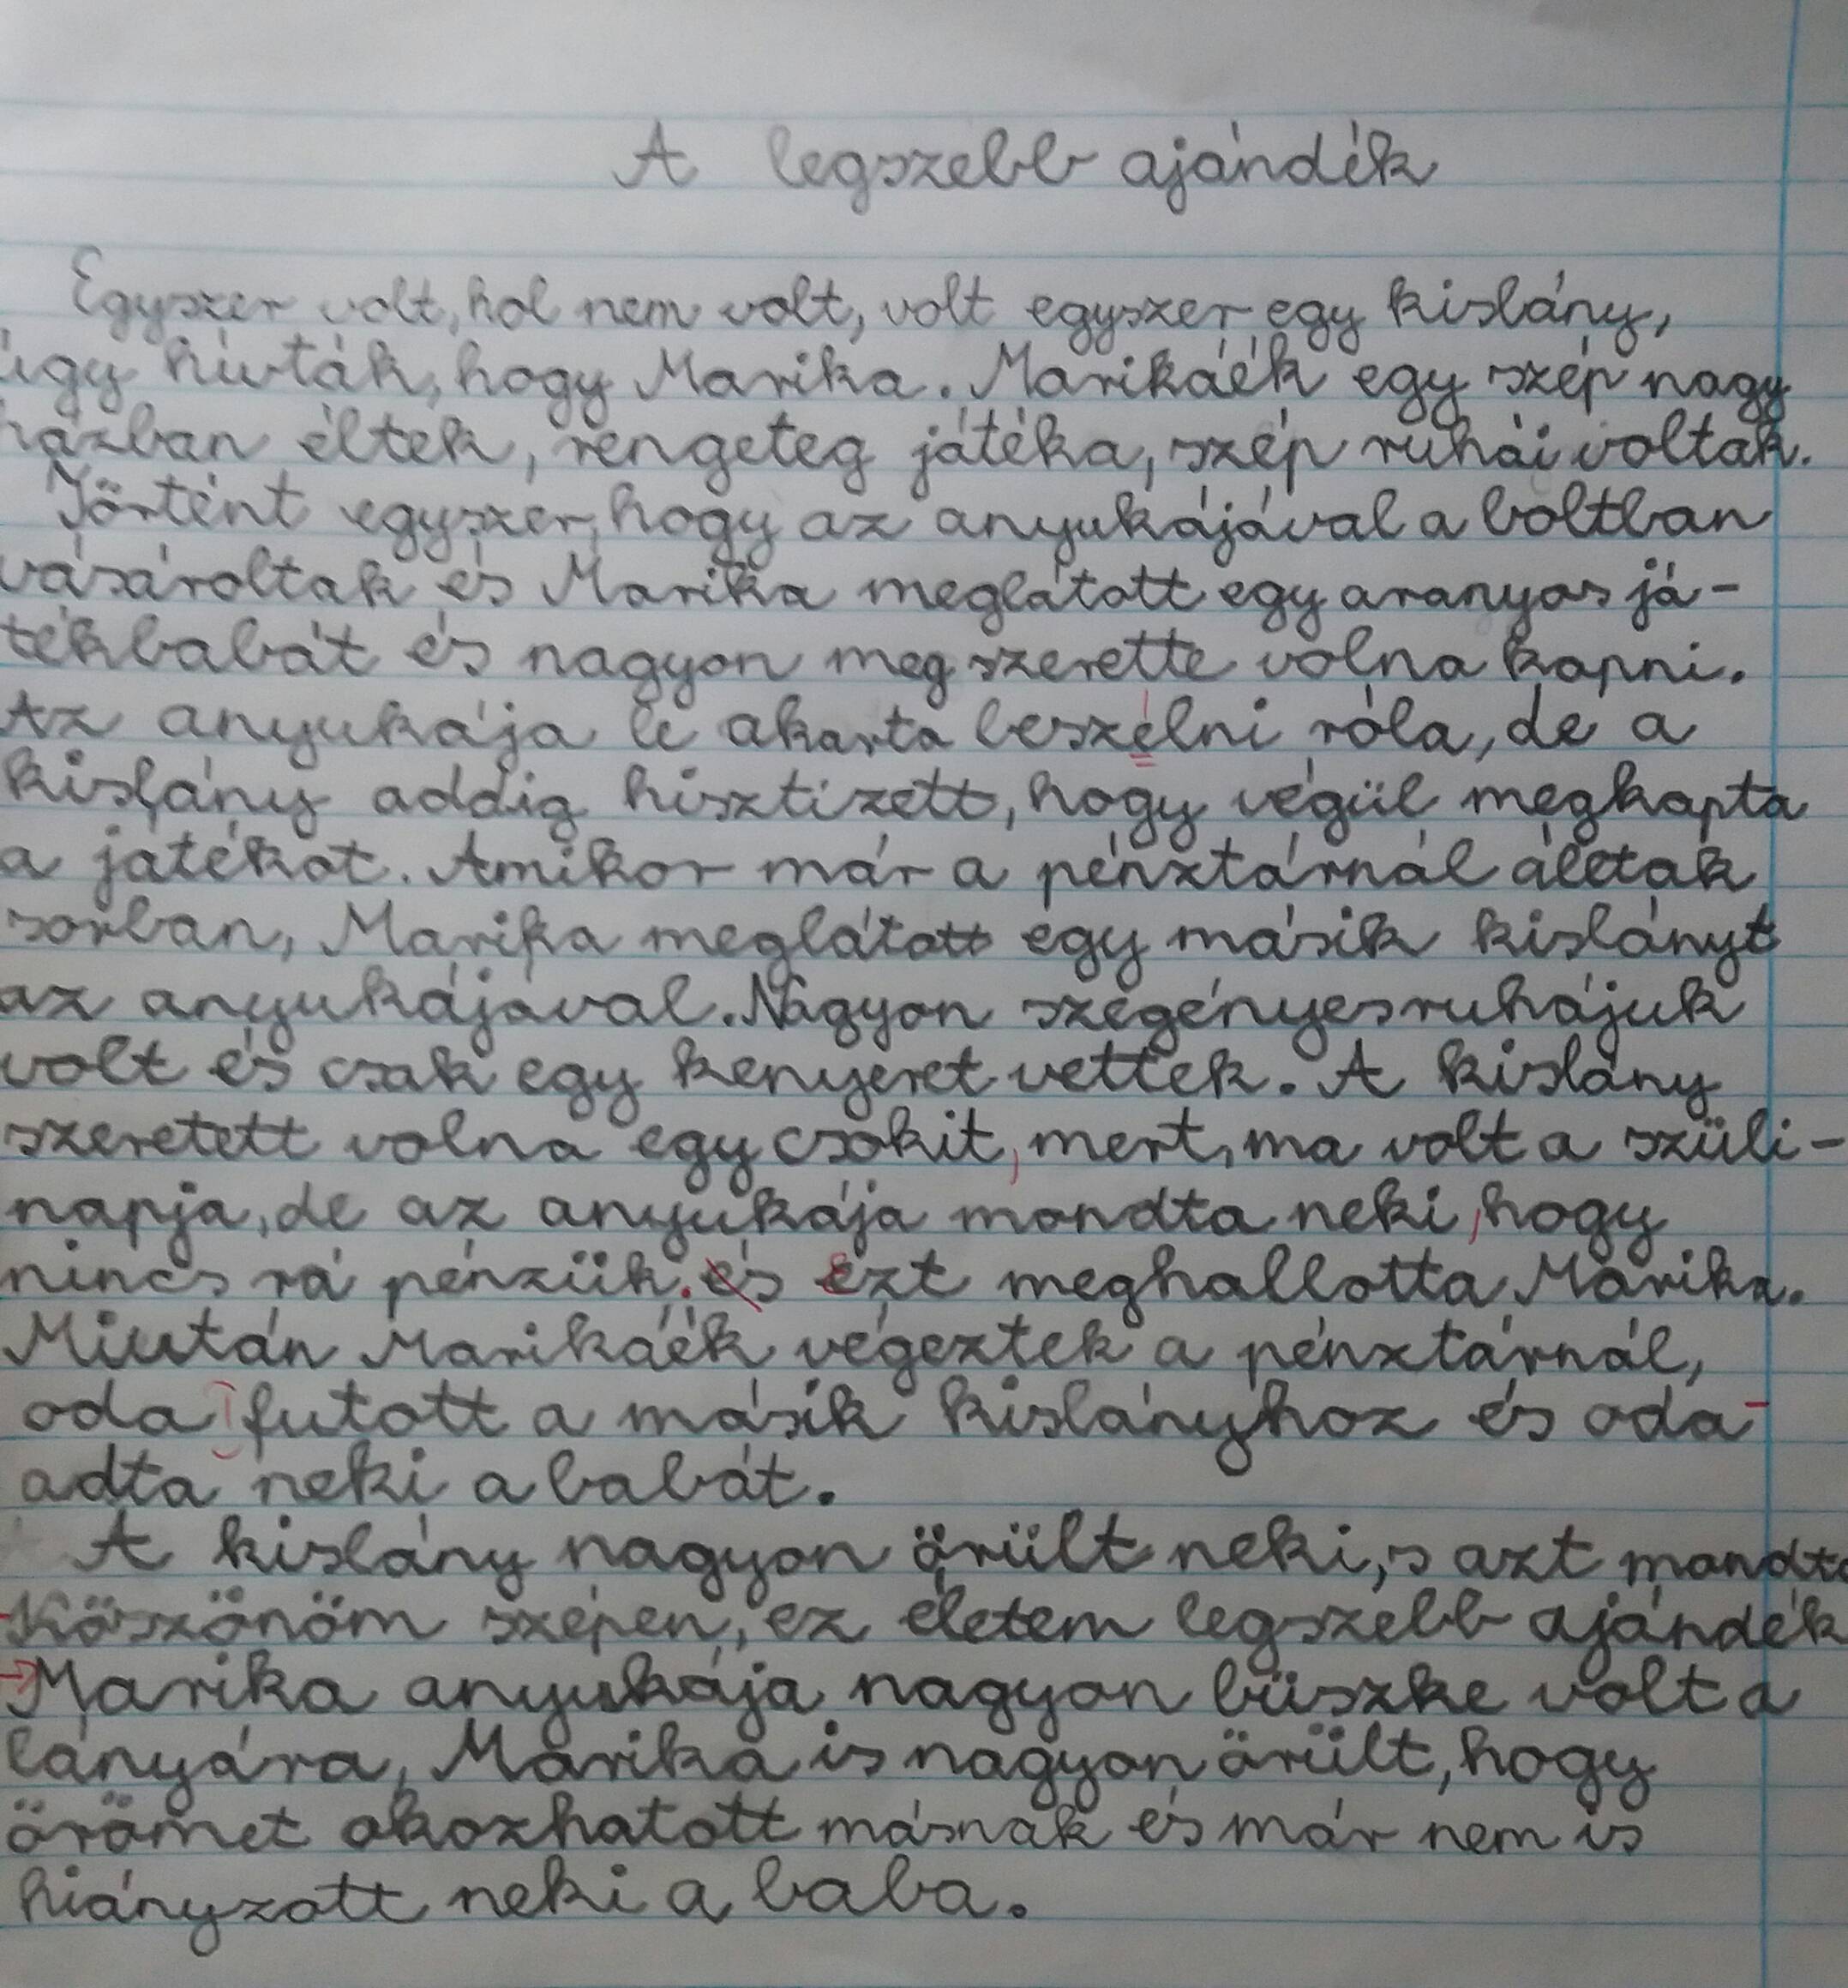 A legszebb ajándék
Egyszer volt, hol nem volt, volt egyszer egy kislány,
úgy hívták, hogy Marika. Marikáék egy szép nagy
házban éltek, rengeteg játéka, szép ruhái voltak.
Történt egyszer, hogy az anyukájával a boltban
vásároltak és Marika meglátott egy aranyos já-
tékbabát és nagyon meg szerette volna kapni.
Az anyukája le akarta beszélni róla, de a
kislány addig hisztizett, hogy végül megkapta
a játékot. Amikor már a pénztárnál álltak
sorban, Marika meglátott egy másik kislányt
az anyukájával. Nagyon szegényes ruhájuk
volt és csak egy kenyeret vettek. A kislány
szeretett volna egy csokit, mert, ma volt a szüli-
napja, de az anyukája mondta neki, hogy
nincs rá pénzük. és ezt meghallotta Marika.
Miután Marikáék végeztek a pénztárnál,
oda futott a másik kislányhoz és oda-
adta neki a babát.
A kislány nagyon örült neki, s azt mondta
-Köszönöm szépen, ez életem legszebb ajándék
Marika anyukája nagyon büszke volt a
lányára, Marika is nagyon örült, hogy
örömet okozhatott másnak és már nem is
hiányzott neki a baba.